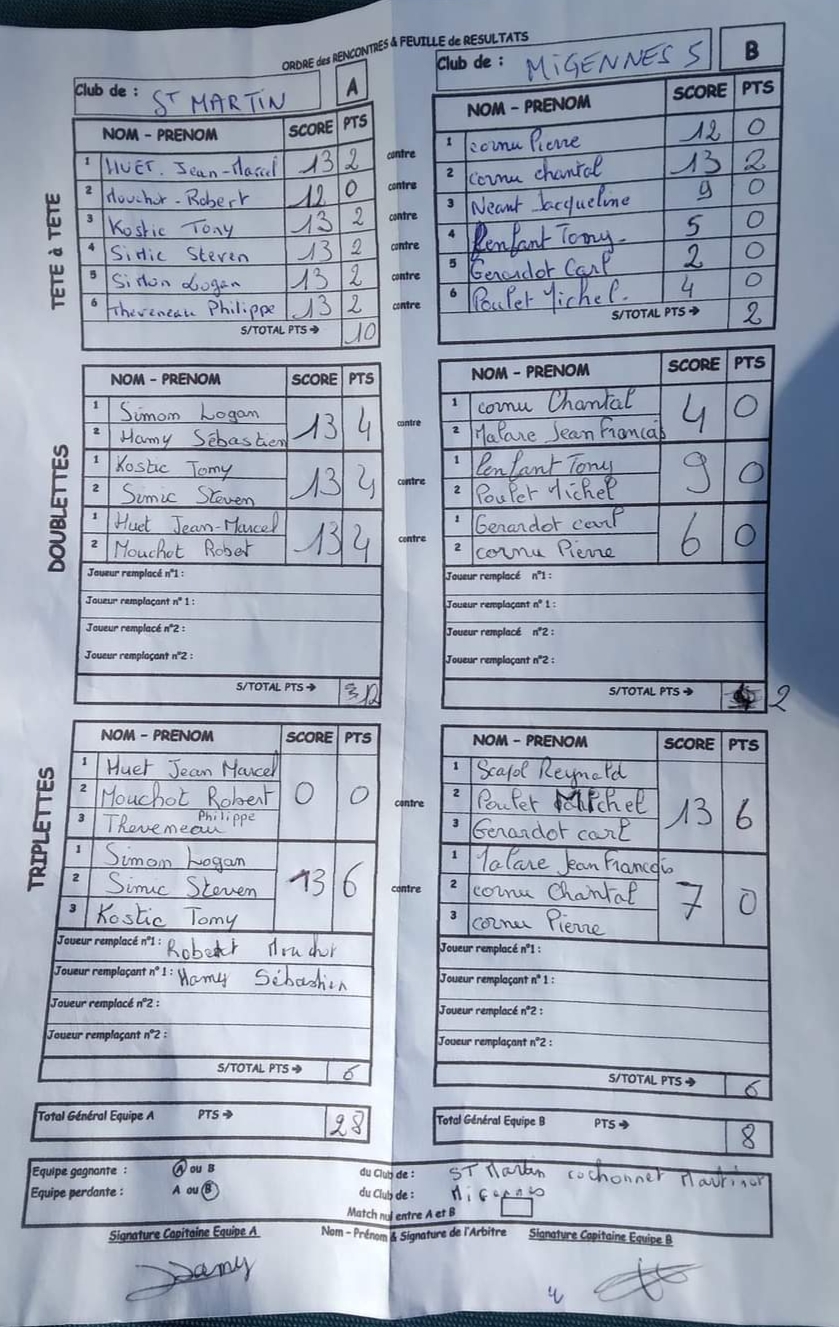 ORDRE des RENCONTRES & FEUILLE de RESULTATS
Club de : ST MARTIN A
NOM - PRENOM SCORE PTS
TETE à TETE
1 HUET. Jean-Marcel 13 2 contre
2 Mouchot-Robert 12 0 contre
3 Kostic Tony 13 2 contre
4 Simic Steven 13 2 contre
5 Simon Logan 13 2 contre
6 Theveneau Philippe 13 2 contre
S/TOTAL PTS → 10
Club de : MIGENNES 5 B
NOM - PRENOM SCORE PTS
1 cornu Pierre 12 0
2 cornu chantal 13 2
3 Neant Jacqueline 9 0
4 Lenfant Tomy- 5 0
5 Gerardot Carl 2 0
6 Poulet Michel. 4 0
S/TOTAL PTS → 2
DOUBLETTES
NOM - PRENOM SCORE PTS
1 Simon Logan 13 4
2 Hamy Sébastien contre
1 Kostic Tomy 13 4
2 Simic Steven contre
1 Huet Jean-Marcel 13 4
2 Mouchot Robert contre
Joueur remplacé n°1 :
Joueur remplaçant n° 1 :
Joueur remplacé n°2 :
Joueur remplaçant n°2 :
S/TOTAL PTS → 12
NOM - PRENOM SCORE PTS
1 cornu Chantal 4 0
2 Malare Jean Francois
1 Lenfant Tony 9 0
2 Poulet Michel
1 Gerardot carl 6 0
2 cornu Pierre
Joueur remplacé n°1 :
Joueur remplaçant n° 1 :
Joueur remplacé n°2 :
Joueur remplaçant n°2 :
S/TOTAL PTS → 2
TRIPLETTES
NOM - PRENOM SCORE PTS
1 Huet Jean Marcel
2 Mouchot Robert 0 0 contre
3 Theveneau Philippe
1 Simon Logan
2 Simic Steven 13 6 contre
3 Kostic Tomy
Joueur remplacé n°1 : Robert Mouchot
Joueur remplaçant n° 1 : Hamy Sébastien
Joueur remplacé n°2 :
Joueur remplaçant n°2 :
S/TOTAL PTS → 6
NOM - PRENOM SCORE PTS
1 Reynald
2 Poulet Michel 13 6
3 Gerardot carl
1 Malare Jean Francois
2 cornu Chantal 7 0
3 cornu Pierre
Joueur remplacé n°1 :
Joueur remplaçant n° 1 :
Joueur remplacé n°2 :
Joueur remplaçant n°2 :
S/TOTAL PTS → 6
Total Général Equipe A PTS → 28
Total Général Equipe B PTS → 8
Equipe gagnante : A ou B du Club de : ST Martin cochonnet Martinot
Equipe perdante : A ou B du Club de : Migennes
Match nul entre A et B
Signature Capitaine Equipe A Nom - Prénom & Signature de l'Arbitre Signature Capitaine Equipe B
Hamy